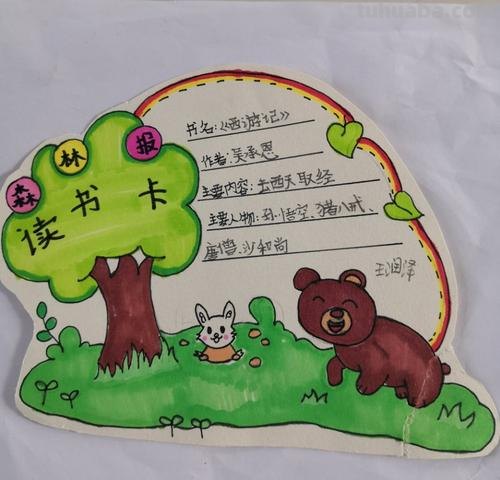 tuhuaba.com
森林报
读书卡
书名:《西游记》
作者:吴承恩
主要内容:去西天取经
主要人物:孙悟空、猪八戒、
唐僧、沙和尚
王润泽